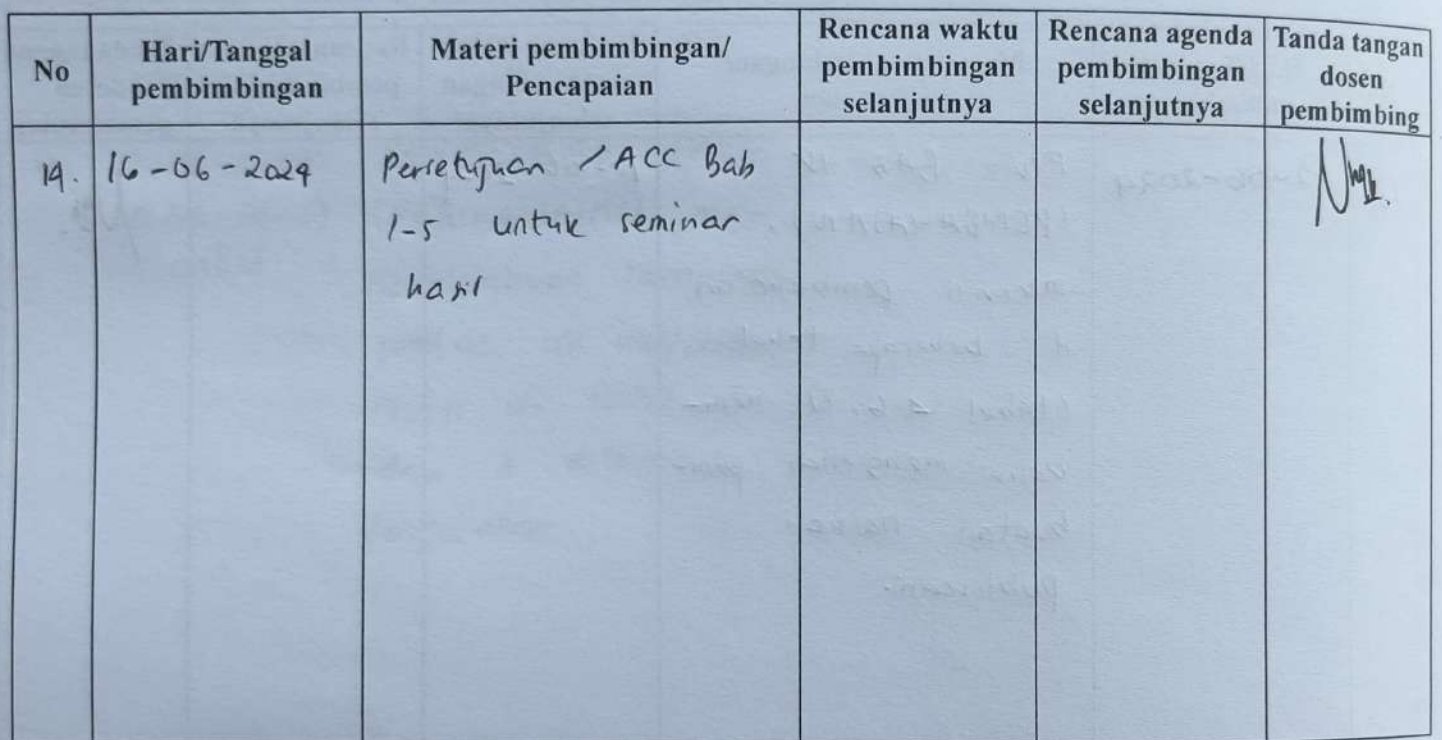 No
Hari/Tanggal
pembimbingan
Materi pembimbingan/
Pencapaian
Rencana waktu
pembimbingan
selanjutnya
Rencana agenda
pembimbingan
selanjutnya
Tanda tangan
dosen
pembimbing
14. 16-06-2024 Persetujuan / ACC Bab
1-5 untuk seminar
hasil